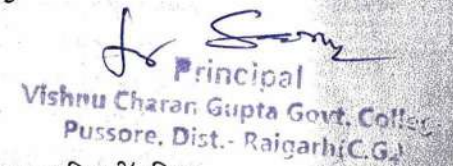 Principal
Vishnu Charan Gupta Govt. Colle
Pussore, Dist.- Raigarh(C.G.)